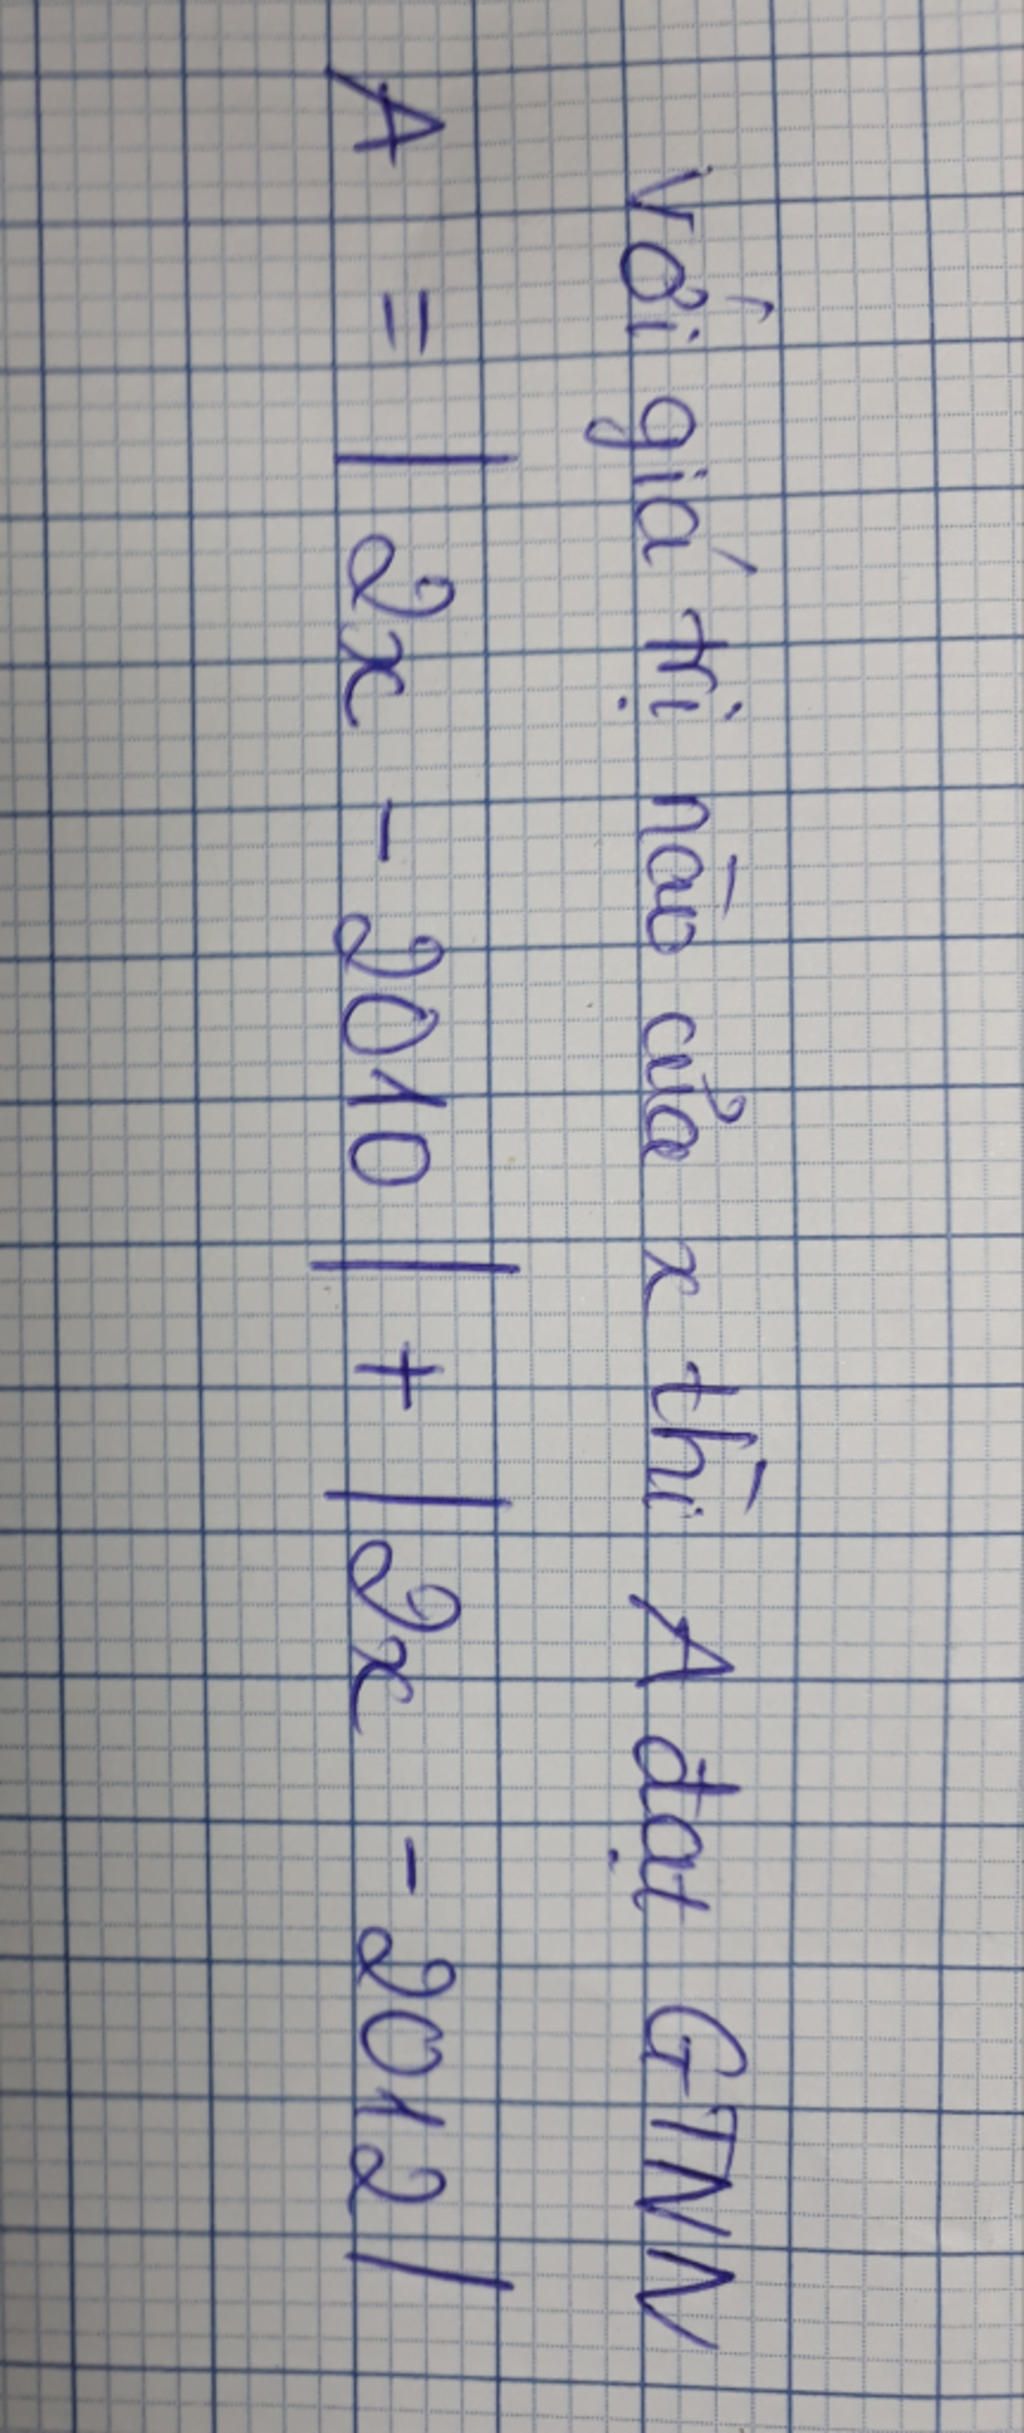 Với giá trị nào của x thì A đạt GTNN
A = | 2x - 2010 | + | 2x - 2012 |